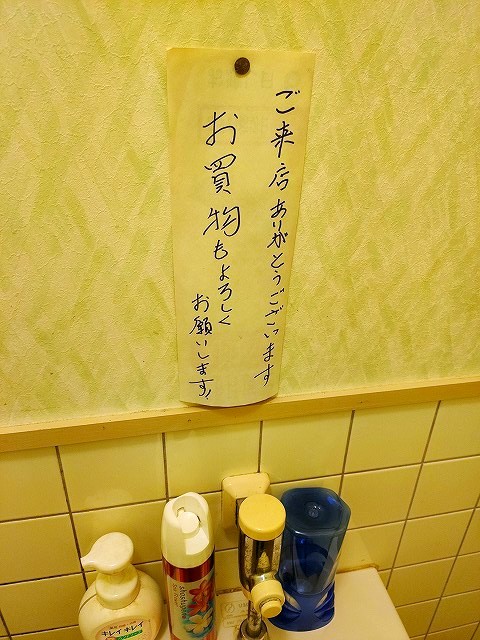 ご来店ありがとうございます
お買物もよろしく
お願いします!
キレイキレイ